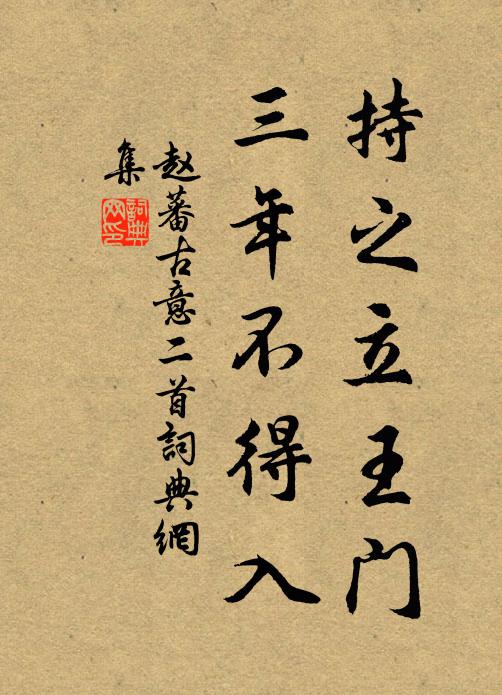 持之立王门
三年不得入
赵蕃古意二首詞典網
集
詞典
网印